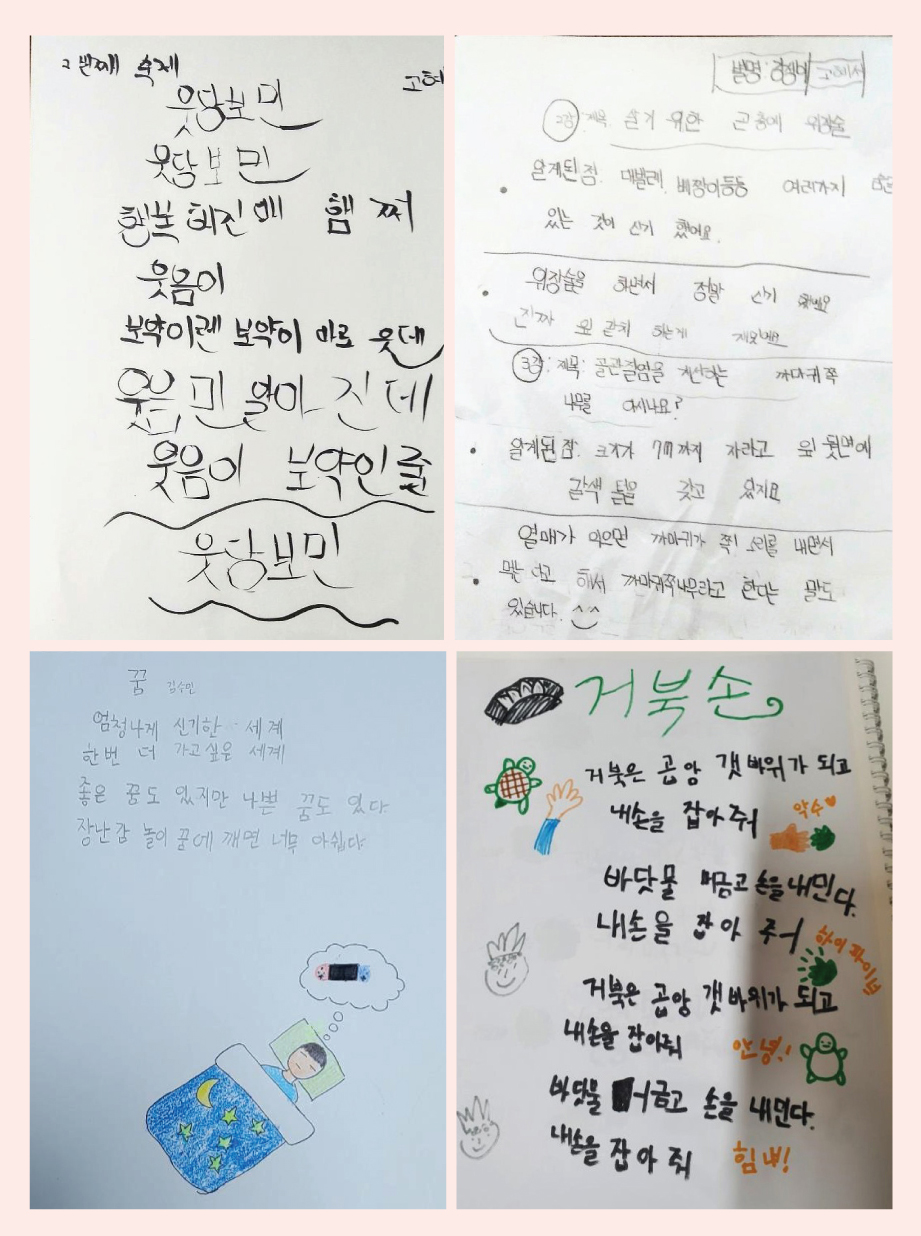 2번째 숙제
고혜
웃당보민
웃당보민
행복해진에 햄쩌
웃음이
보약이렌 보약이 따로 웃데
웃당보민 알아진데
웃음이 보약인줄
웃당보민
별명: 고혜서
2장 제목: 살기 위한 곤충에 위장술
알게된 점: 대벌레, 베짱이등등 여러가지
있는 것이 신기 했어요.
위장술을 하면서 정말 신기 했네요
진짜 꼭 같이 하는게
3장 제목: 골관절염을 개선하는 까마귀쪽
나무를 아시나요?
알게된점: 크기가 7m까지 자라고 잎 뒷면에
갈색 털을 갖고 있지요
열매가 익으면 까마귀가 쪽! 소리를 내면서
먹는다고 해서 까마귀쪽나무라고 한다는 말도
있습니다. ^^
꿈 김수민
엄청나게 신기한 세계
한번 더 가고싶은 세계
좋은 꿈도 있지만 나쁜 꿈도 있다.
장난감 놀이 꿈에 깨면 너무 아쉽다.
거북손
거북은 곱앙 갯바위가 되고
내손을 잡아줘
악수
바닷물 머금고 손을 내민다.
내손을 잡아 주ㅓ
하이파이브
거북은 곱앙 갯바위가 되고
내손을 잡아줘
안녕!
바닷물 머금고 손을 내민다.
내손을 잡아 줘
힘내!